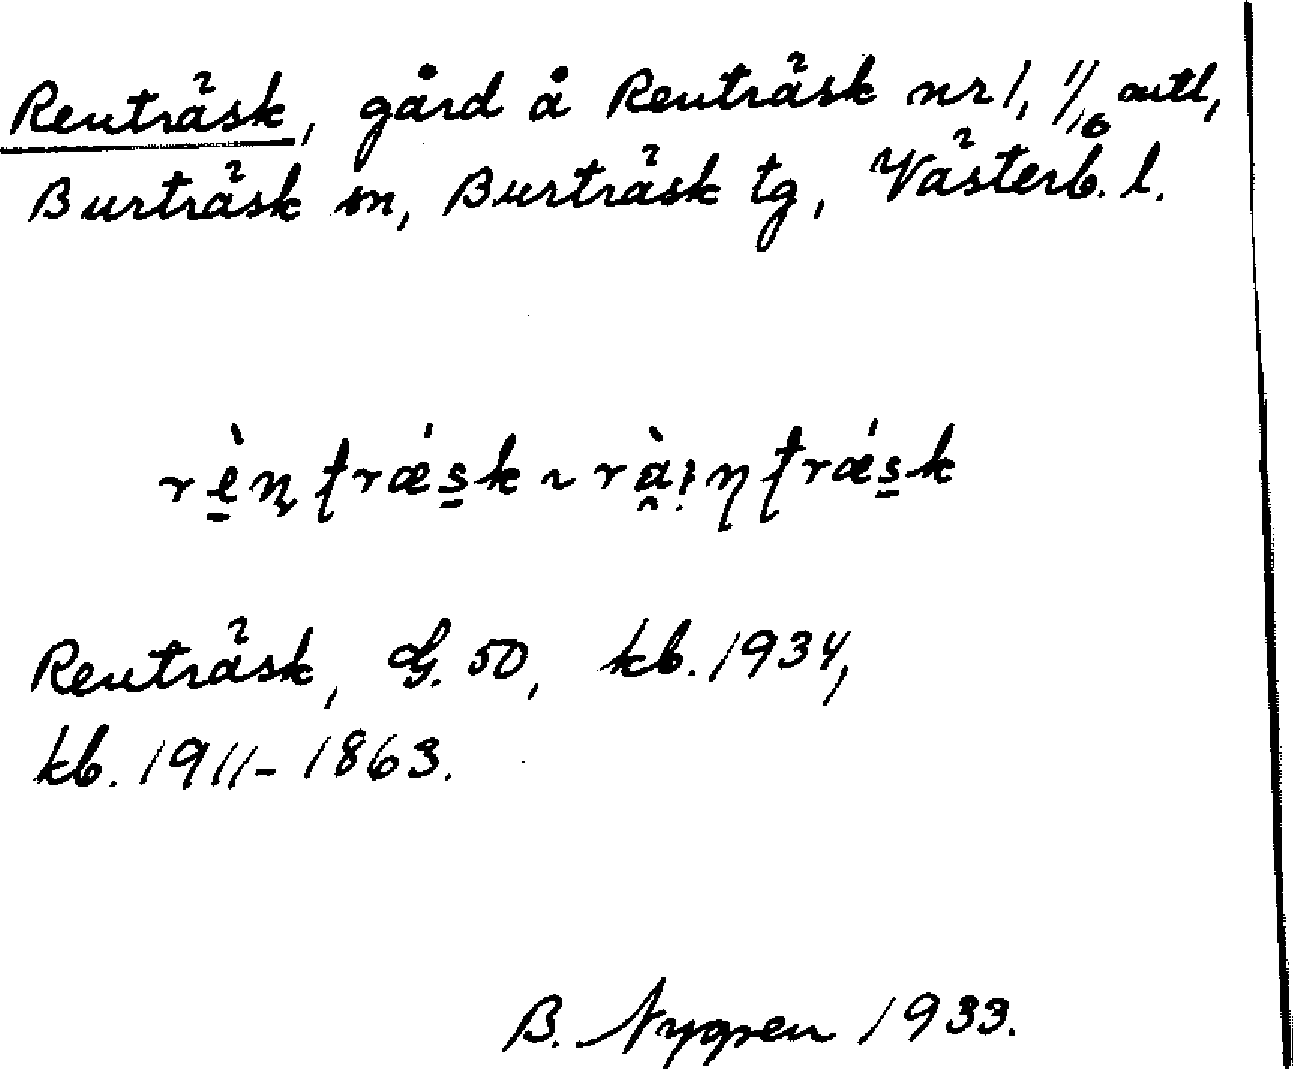 Renträsk, gård å Renträsk nr 1, 1/16 mtl,
Burträsk sn, Burträsk tg, Västerb. l.
Renträsk, G. 50, kb. 1934,
kb. 1911-1863.
B. Nygren 1933.